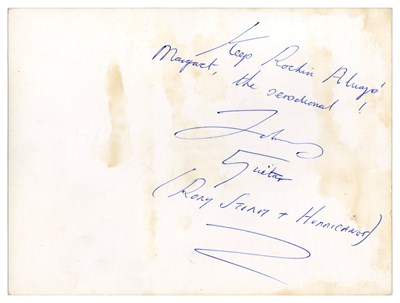 Keep Rockin Always!
Margaret, the sensational !
Johnny
Guitar
(Rory Storm + Hurricanes)